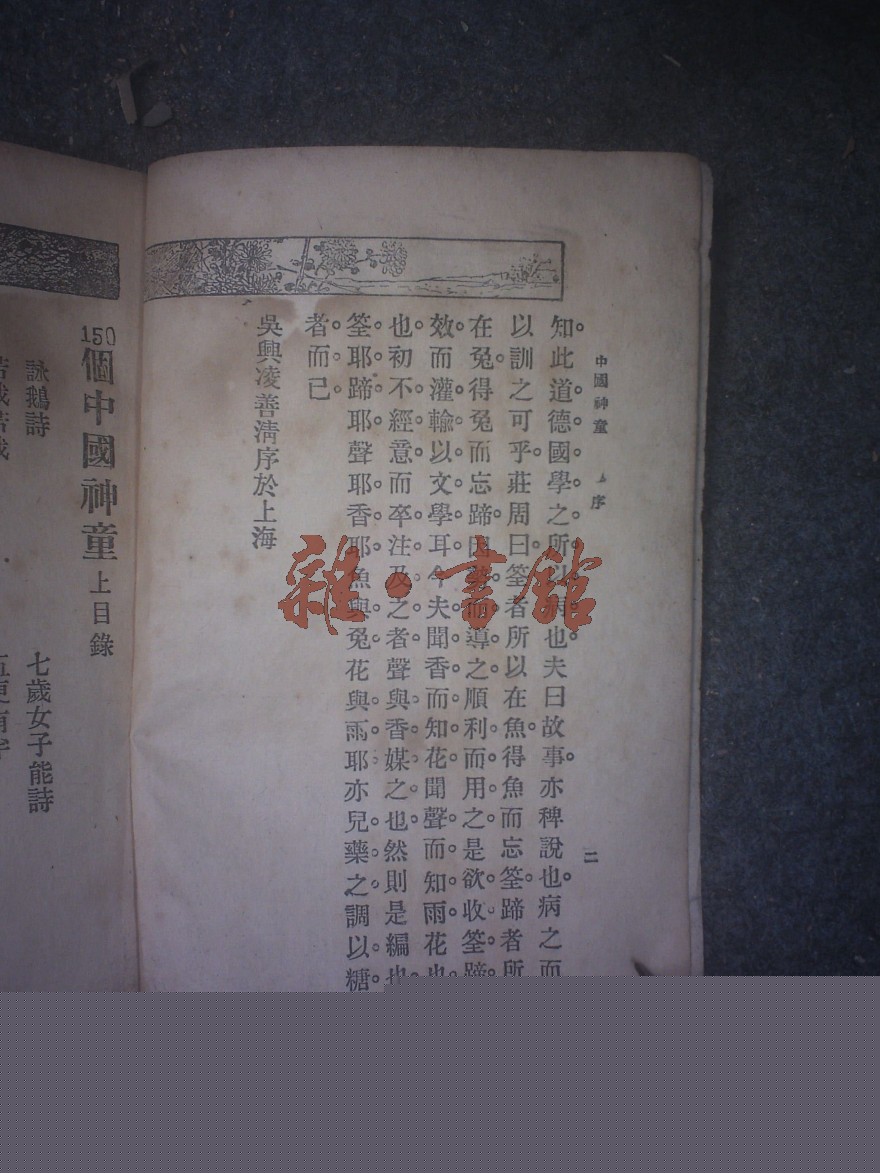 中國神童
序
二
知此道德國學之所以病也夫曰故事亦稗說也病之而
以訓之可乎莊周曰筌者所以在魚得魚而忘筌蹄者所
在兔得兔而忘蹄因勢而導之順利而用之是欲收筌蹄
效而灌輸以文學耳今夫聞香而知花聞聲而知雨花也
也初不經意而卒注及之者聲與香媒之也然則是編也
筌耶蹄耶聲耶香耶魚與兔花與雨耶亦兒藥之調以糖
者而已
吳興凌善清序於上海
150個中國神童上目錄
詠鵝詩
七歲女子能詩
雜·書館